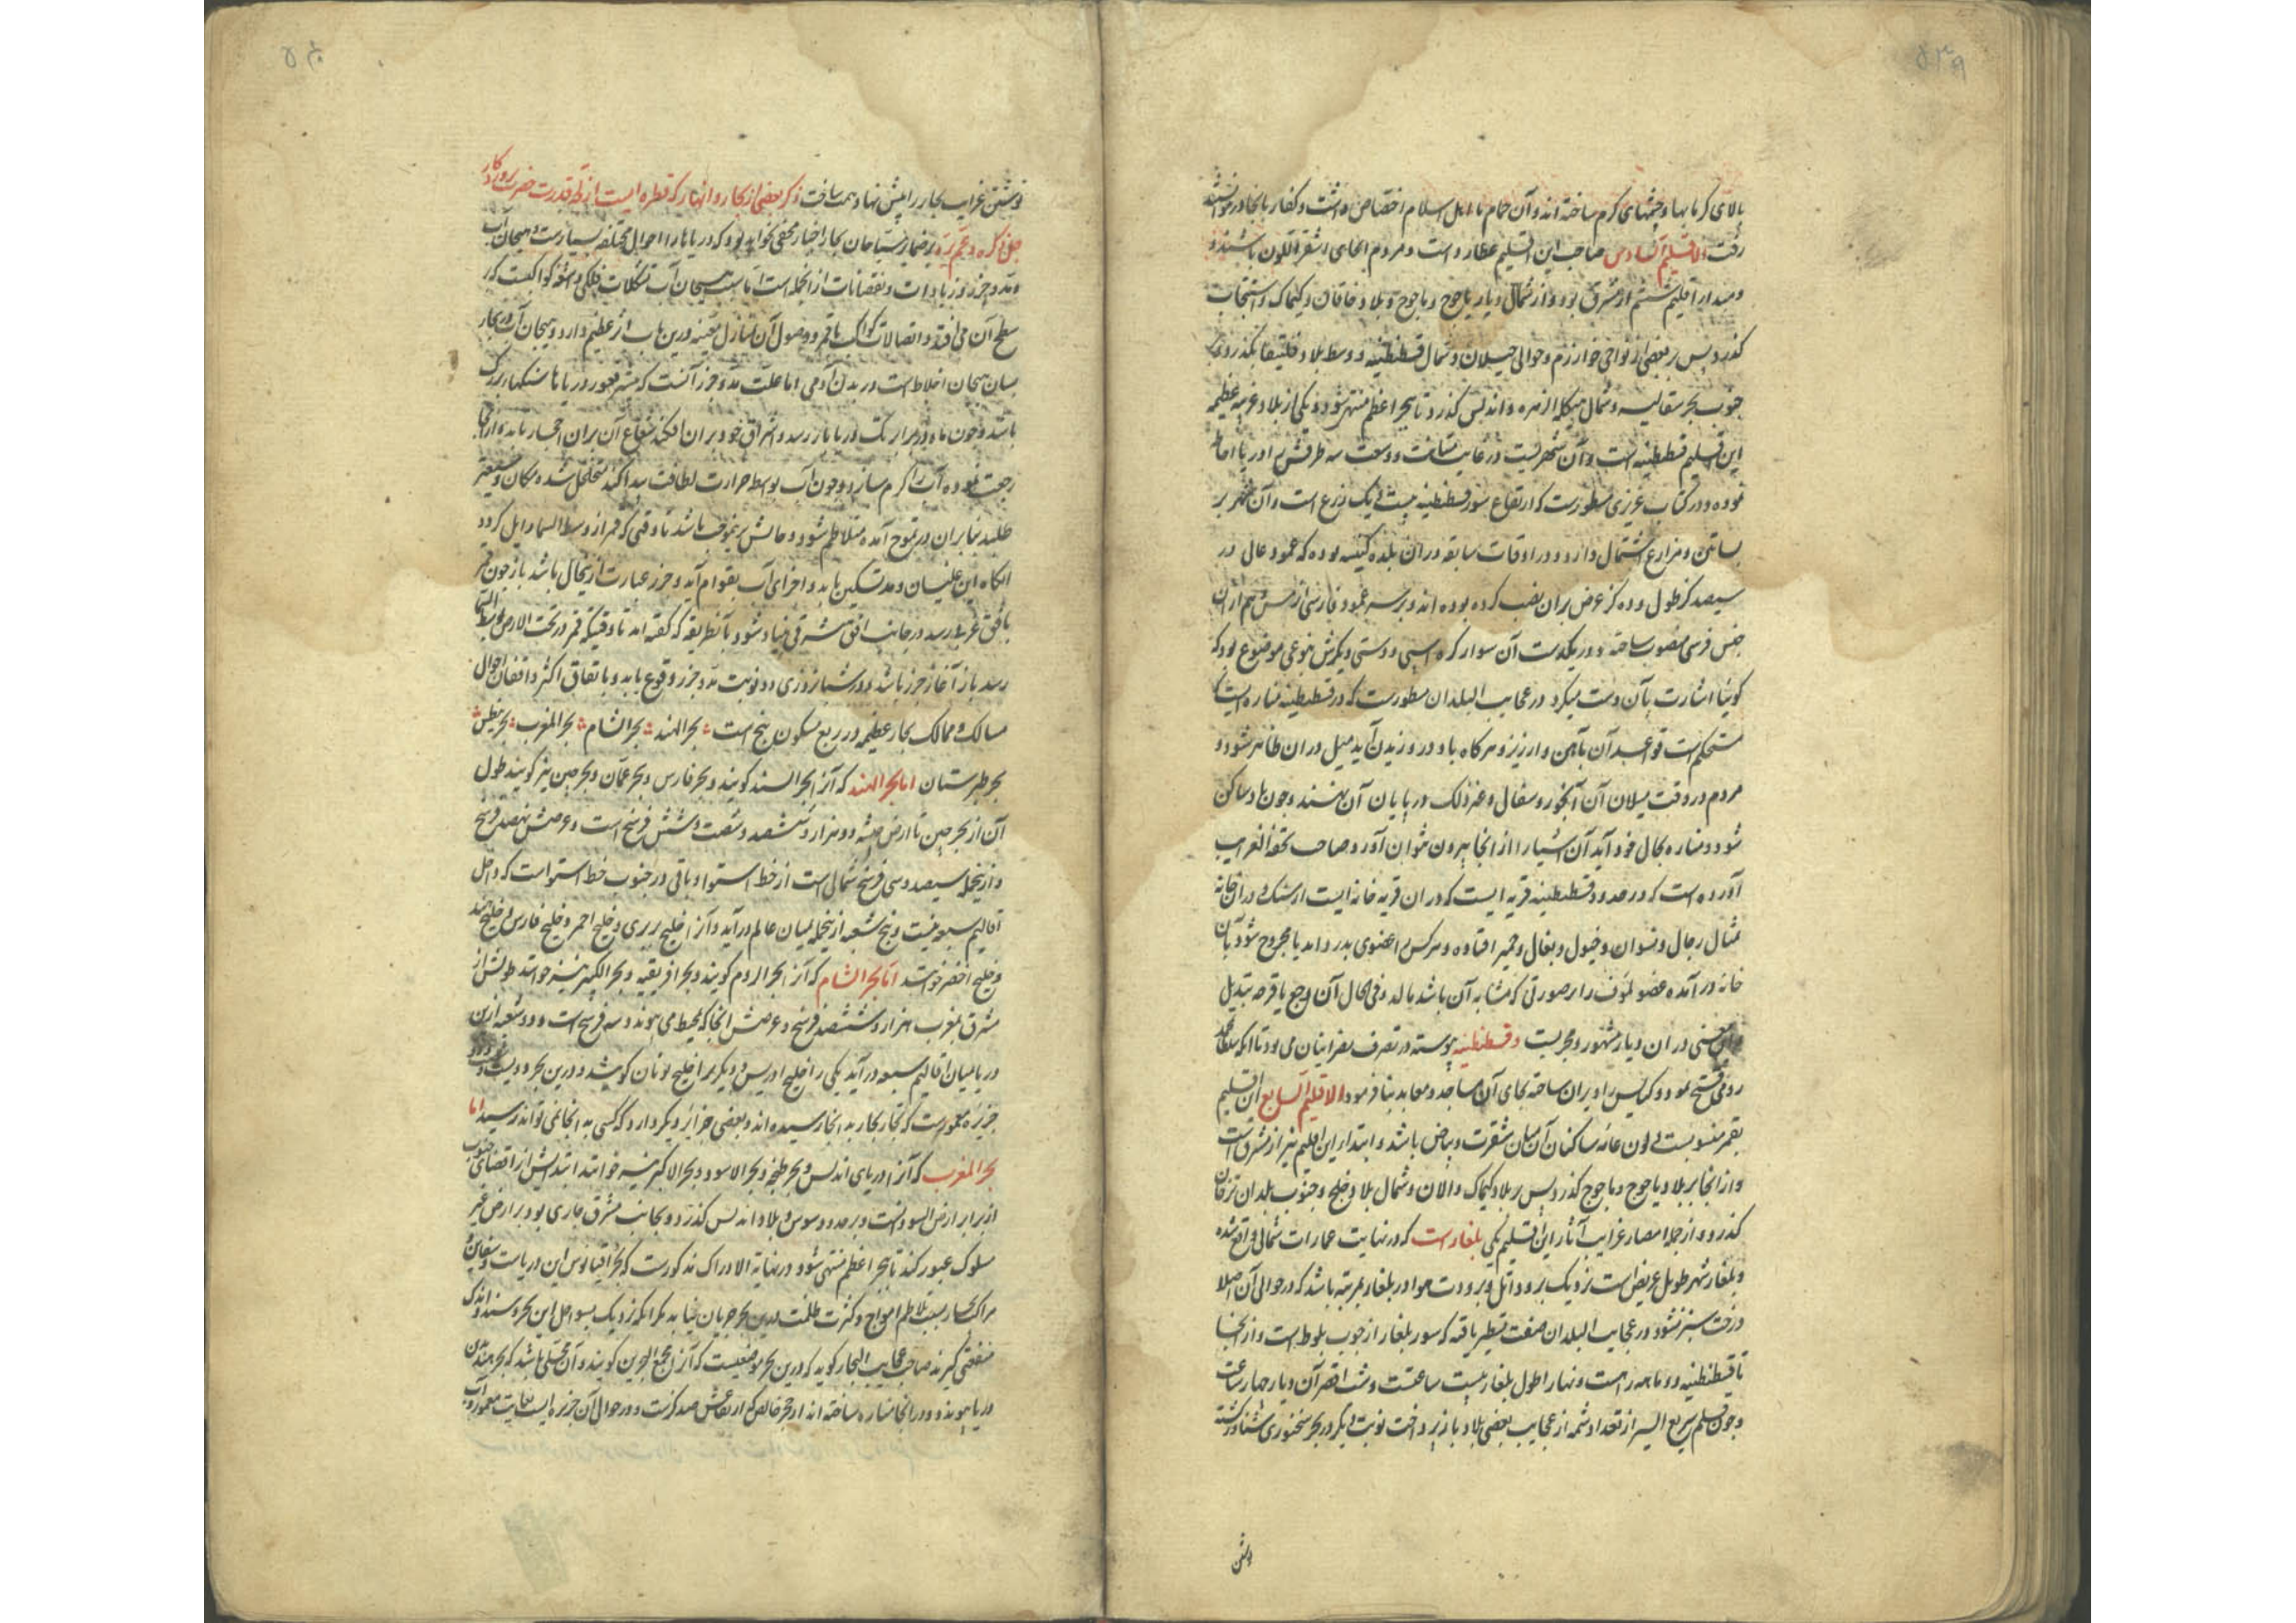 ۵۳۹
بالای گرمابها و چشمهای گرم ساخته اند و آن حمام با اهل اسلام اختصاص داشت و کفار بانجا در نتوانستند
رفت الاقلیم السادس صاحب این اقلیم عطارد است و مردم انجای اشقر اللون باشند و
و مبدا اقلیم ششم از مشرق بود و از شمال دیار یاجوج و ماجوج و بلاد خاقان و کیماک و اسنجاب
گذرد پس بر بعضی از نواحی خوارزم و حوالی جیلان و شمال قسطنطنیه و وسط بلاد بگذرد و
جنوب بحر سقالیه و شمال هیکل الزهره و اندلس گذرد تا ببحر اعظم منتهی شود و یکی از بلاد غریبه عظیمه
این اقلیم قسطنطنیه است و آن شهریست در غایت متانت و وسعت سه طرفش را دریا احاطه
نموده و در کتاب عزیزی مسطورست که ارتفاع سور قسطنطنیه بیست و یک ذرع است و آن شهر بر
بساتین و مزارع اشتمال دارد و در اوقات سابقه دران بلده کنیسه بوده که عمود عالی در
سیصد گز طول و ده گز عرض بران نصب کرده بوده اند و بر سر عمود فارسی از مس هم ازان
جنس فرسی منصوب ساخته و در یکدست آن سوار کره اسبی و دستی دیگرش بنوعی موضوع بود که
گوئیا اشارت بآن دست میکرد در عجایب البلدان مسطورست که در قسطنطنیه مناره ایست که
مستحکم است قواعد آن بآهن و ارزیز و هرگاه باد در وزیدن آید میل دران ظاهر شود و
مردم در وقت میلان آن آبخور و سفال و غیر ذلک در پایان آن نهند و چون باد ساکن
شود و مناره بحال خود آید آن اشیا را از انجا بیرون نتوان آورد و صاحب تحفة الغرایب
آورده است که در حدود قسطنطنیه قریه ایست که دران قریه خانه ایست از سنگ و دران خانه
تمثال رجال و نسوان و خیول و بغال و حمیر افتاده و هر کس را عضوی بدرد اید یا مجروح شود بآن
خانه در آمده عضو مؤف را بر صورتی که مشابه آن باشد بمالد و فی الحال آن وجع یا قرحه تبدیل
و این معنی دران دیار مشهور و مجربست و قسطنطنیه پیوسته در تصرف نصرانیان می بود تا انکه سلطان محمد
رومی فتح نمود و کنایس را ویران ساخته بجای آن مساجد و معابد بنا فرمود الاقلیم السابع این اقلیم
بقمر منسوبست و لون عامه ساکنان آن میان شقرت و بیاض باشد و ابتداء این اقلیم نیز از مشرق است
و از انجا بر بلاد یاجوج و ماجوج گذرد پس بر بلاد کیماک و الان و شمال بلاد خلج و جنوب بلدان ترخان
گذرد و از جمله امصار غرایب آثار این اقلیم یکی بلغارست که در نهایت عمارات شمالی واقع شده
و بلغار شهر طویل عریض است نزدیک برود اتل و برودت هوا در بلغار بمرتبه باشد که در حوالی آن اصلا
درخت سبز نشود در عجایب البلدان صفت تسطیر یافته که سور بلغار از چوب بلوط است و از انجا
تا قسطنطنیه دو ماهه راهست و نهار اطول بلغار بیست ساعتست و شب اقصر آن دیار چهار ساعت
و چون قلم سریع السیر از تعداد شمه از عجایب بعضی بلاد باز پرداخت نوبت دیگر در بحر سخنوری شناور گشته
نوشتن
نوشتن غرایب بحار را پیش نهاد همت ساخت ذکر بعضی از بحار و انهار که قطره ایست از قدرت حضرت پروردگار
جل ذکره و عم بره بر ضمایر سیاحان بحار اخبار مخفی نخواهد بود که دریاها را احوال مختلفه بسیارست و هیجان آب
و مد و جزر و زیادات و نقصانات از انجمله است اما سبب هیجان آب تشکلات فلکی و کواکبست که بر
سطح آن می افتد و اتصالات کواکب با قمر و وصول آن بمنازل معینه درین باب اثر عظیم دارد و هیجان آب در بحار
بسان هیجان اخلاط است در بدن آدمی اما علت مد و جزر آنست که در قعور دریاها سنگهای بزرگ
باشد و چون ماه در برابر یک دریا باز رسد و اشراق خود بران افکند شعاع آن بران احجار تابد و از انجا
رجعت نموده آب را گرم سازد و چون آب بواسطه حرارت لطافت پیدا کند متخلخل شده مکان وسیعتر
طلبد بنابران در تموج آمده متلاطم شود و حالش برینموجب باشد تا وقتی که قمر از وسط السما زایل گردد
انگاه این غلیان و مد تسکین یابد و اجزای آب بقوام آید و جزر عبارت ازینحال باشد باز چون قمر
بافق غربی رسد در جانب افق مشرقی بنیاد شود بآنطریقه که گفته اند تا وقتیکه قمر در تحت الارض بوسط السما
رسد باز آغاز جزر باشد و در شبانروزی دو نوبت مد و جزر وقوع یابد و باتفاق اکثر واقفان احوال
مسالک و ممالک بحار عظیمه در ربع مسکون پنج است بحر الهند بحر الشام بحر المغرب بحر نیطس
بحر طبرستان اما بحر الهند که آنرا بحر السند گویند و بحر فارس و بحر عمان و بحر چین نیز گویند طول
آن از بحر چین تا ارض حبشه دو هزار و ششصد و شصت و شش فرسخ است و عرضش نهصد فرسخ
و ازینجمله سیصد و سی فرسخ شمالی است از خط استوا و باقی در جنوب خط استواست که داخل
اقالیم سبعه نیست و پنج شعبه ازینجمله بمیان عالم درآید و آنرا خلیج بربری و خلیج احمر و خلیج فارس و خلیج هند
و خلیج اخضر خوانند اما بحر الشام که آنرا بحر الروم گویند و بحر افریقیه و بحر الکبیر نیز خوانند طولش از
مشرق بمغرب هزار و ششصد فرسخ و عرضش انجا که بمحیط می پیوندد سه فرسخ است و دو شعبه ازین
دریا بمیان اقالیم سبعه درآید یکی را خلیج ادریس و دیگر را خلیج یونان گویند و درین بحر دویست و
جزیره معمورست که تجار بحار به انجا رسیده اند و بعضی جزایر دیگر دارد که کسی به انجا نمی تواند رسید اما
بحر المغرب که آنرا دریای اندلس و بحر طنجه و بحر الاسود و بحر الاکبر نیز خوانند ابتدایش از اقصای جنوب
از برابر ارض السودانست و بر حدود سوس و بلاد اندلس گذرد و بجانب مشرق جاری بود بر ارض غیر
مسلوک عبور کند تا ببحر اعظم منتهی شود و در نهایة الادراک مذکورست که بحر اقیانوس این دریاست و سفاین
مراکب بحار بسبب تلاطم امواج و کثرت ظلمت درین بحر جریان نیابد مگر انکه نزدیک بسواحل این بحر روند و اندک
منفعتی گیرند صاحب عجایب البحار گوید که درین بحر موضعیست که آنرا مجمع البحرین گویند و آن محلی باشد که بحر هند بدین
دریا پیوندد و در انجا مناره ساخته اند از حجر خالص که ارتفاعش صد گزست و در حوالی آن جزیره ایست بغایت معمور و آب